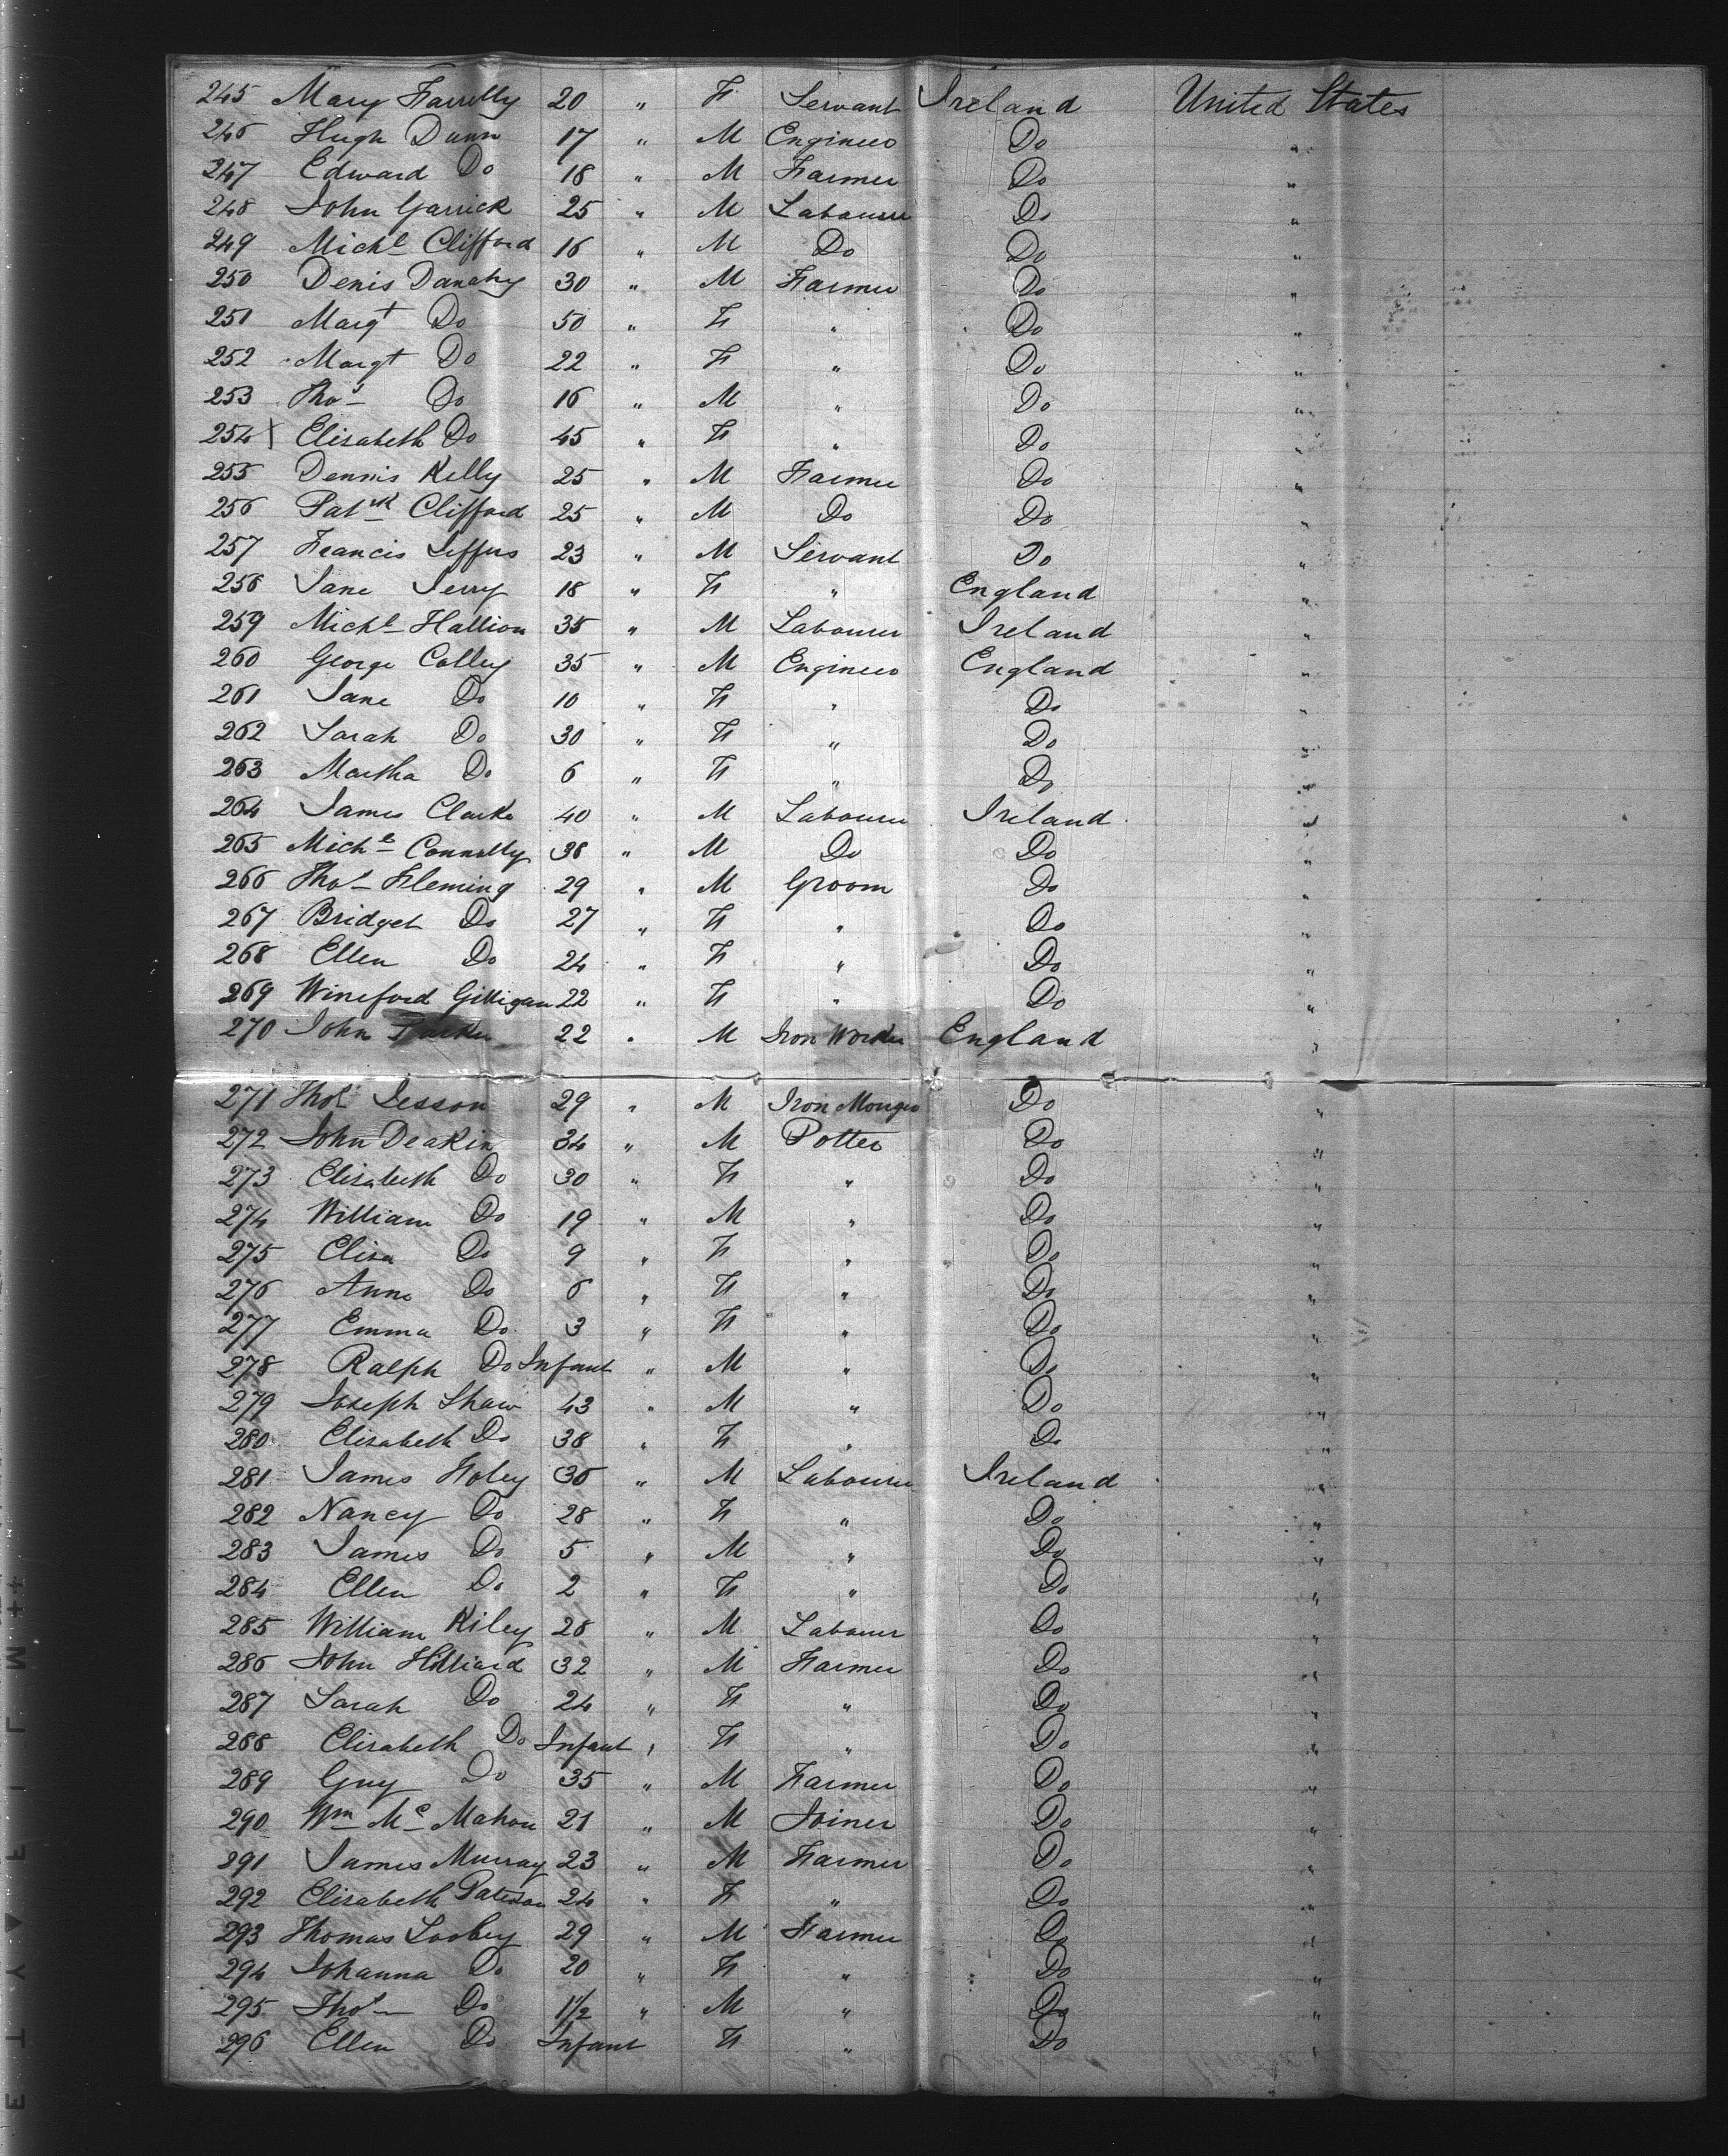 245 Mary Farrelly 20 " F Servant Ireland United States
246 Hugh Dunn 17 " M Engineer Do "
247 Edward Do 18 " M Farmer Do "
248 John Garrick 25 " M Labourer Do "
249 Michl Clifford 16 " M Do Do "
250 Denis Danahy 30 " M Farmer Do "
251 Margt Do 50 " F " Do "
252 Margt Do 22 " F " Do "
253 Thos Do 16 " M " Do "
254 X Elisabeth Do 45 " F " Do "
255 Dennis Kelly 25 " M Farmer Do "
256 Patrk Clifford 25 " M Do Do "
257 Francis Jeffers 23 " M Servant Do "
258 Jane Jerry 18 " F " England "
259 Michl Hallion 35 " M Labourer Ireland "
260 George Colley 35 " M Engineer England "
261 Jane Do 10 " F " Do "
262 Sarah Do 30 " F " Do "
263 Martha Do 6 " F " Do "
264 James Clarke 40 " M Labourer Ireland "
265 Michl Connelly 38 " M Do Do "
266 Thos Fleming 29 " M Groom Do "
267 Bridget Do 27 " F " Do "
268 Ellen Do 24 " F " Do "
269 Wineford Gilligan 22 " F " Do "
270 John 22 " M Iron Worker England "
271 Thos Jesson 29 " M Iron Monger Do "
272 John Deakin 34 " M Potter Do "
273 Elisabeth Do 30 " F " Do "
274 William Do 19 " M " Do "
275 Elisa Do 9 " F " Do "
276 Anne Do 6 " F " Do "
277 Emma Do 3 " F " Do "
278 Ralph Do Infant " M " Do "
279 Joseph Shaw 43 " M " Do "
280 Elisabeth Do 38 " F " Do "
281 James Foley 36 " M Labourer Ireland "
282 Nancy Do 28 " F " Do "
283 James Do 5 " M " Do "
284 Ellen Do 2 " F " Do "
285 William Kiley 28 " M Labourer Do "
286 John Hilliard 32 " M Farmer Do "
287 Sarah Do 24 " F " Do "
288 Elisabeth Do Infant " F " Do "
289 Guy Do 35 " M Farmer Do "
290 Wm Mc Mahon 21 " M Joiner Do "
291 James Murray 23 " M Farmer Do "
292 Elisabeth Pateson 24 " F " Do "
293 Thomas Loobey 29 " M Farmer Do "
294 Johanna Do 20 " F " Do "
295 Thos Do 1 1/2 " M " Do "
296 Ellen Do Infant F " Do "